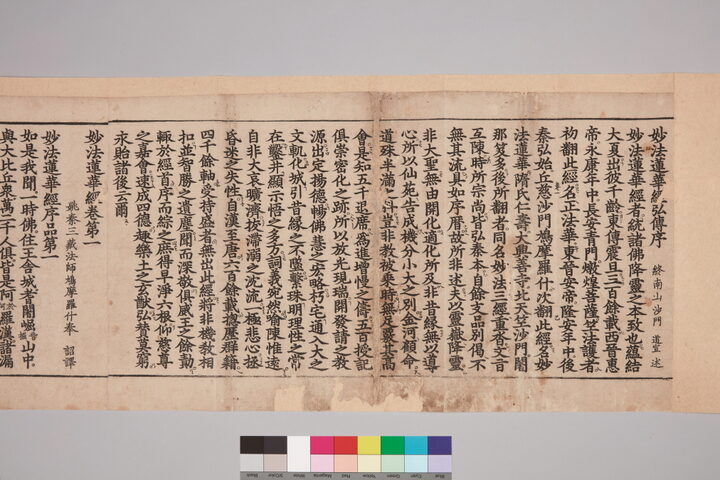 妙法蓮華經弘傳序 終南山沙門 道宣 述
妙法蓮華經者統諸佛降靈之本致也蘊結
大夏出彼千齡東傳震旦三百餘載西晉惠
帝永康年中長安青門燉煌菩薩竺法護者
初翻此經名正法華東晉安帝隆安年中後
秦弘始丘慈沙門鳩摩羅什次翻此經名妙
法蓮華隋氏仁壽大興善寺北天竺沙門闍
那笈多後所翻者同名妙法三經重沓文旨
互陳時所宗尚皆弘秦本自餘支品別偈不
無其流具如序曆故所非述夫以靈嶽降靈
非大聖無由開化適化所及非昔緣無以導
心所以仙苑告成機分小大之別金河顧命
道殊半滿之科豈非教被乘時無足覈其高
會是知五千退席為進增慢之儔五百授記
俱崇密化之跡所以放光現瑞開發請之教
源出定揚德暢佛慧之宏略朽宅通入大之
文軌化城引昔緣之不墜繫珠明理性之常
在鑿井顯示悟之多方詞義宛然喻陳惟遠
自非大哀曠濟拔滯溺之沈流一極悲心拯
昏迷之失性自漢至唐六百餘載總歷群籍
四千餘軸受持盛者無出此經將非機教相
扣並智勝之遺塵聞而深敬俱威王之餘勣
輒於經首序而綜之庶得早淨六根仰慈尊
之嘉會速成四德趣樂土之玄猷弘贊莫窮
永貽諸後云爾
妙法蓮華經卷第一
姚秦三藏法師鳩摩羅什奉 詔譯
妙法蓮華經序品第一
如是我聞一時佛住王舍城耆闍崛山中
與大比丘衆萬二千人俱皆是阿羅漢諸漏